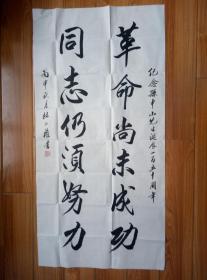 纪念孙中山先生诞辰一百五十周年
革命尚未成功
同志仍须努力
丙申秋月
书